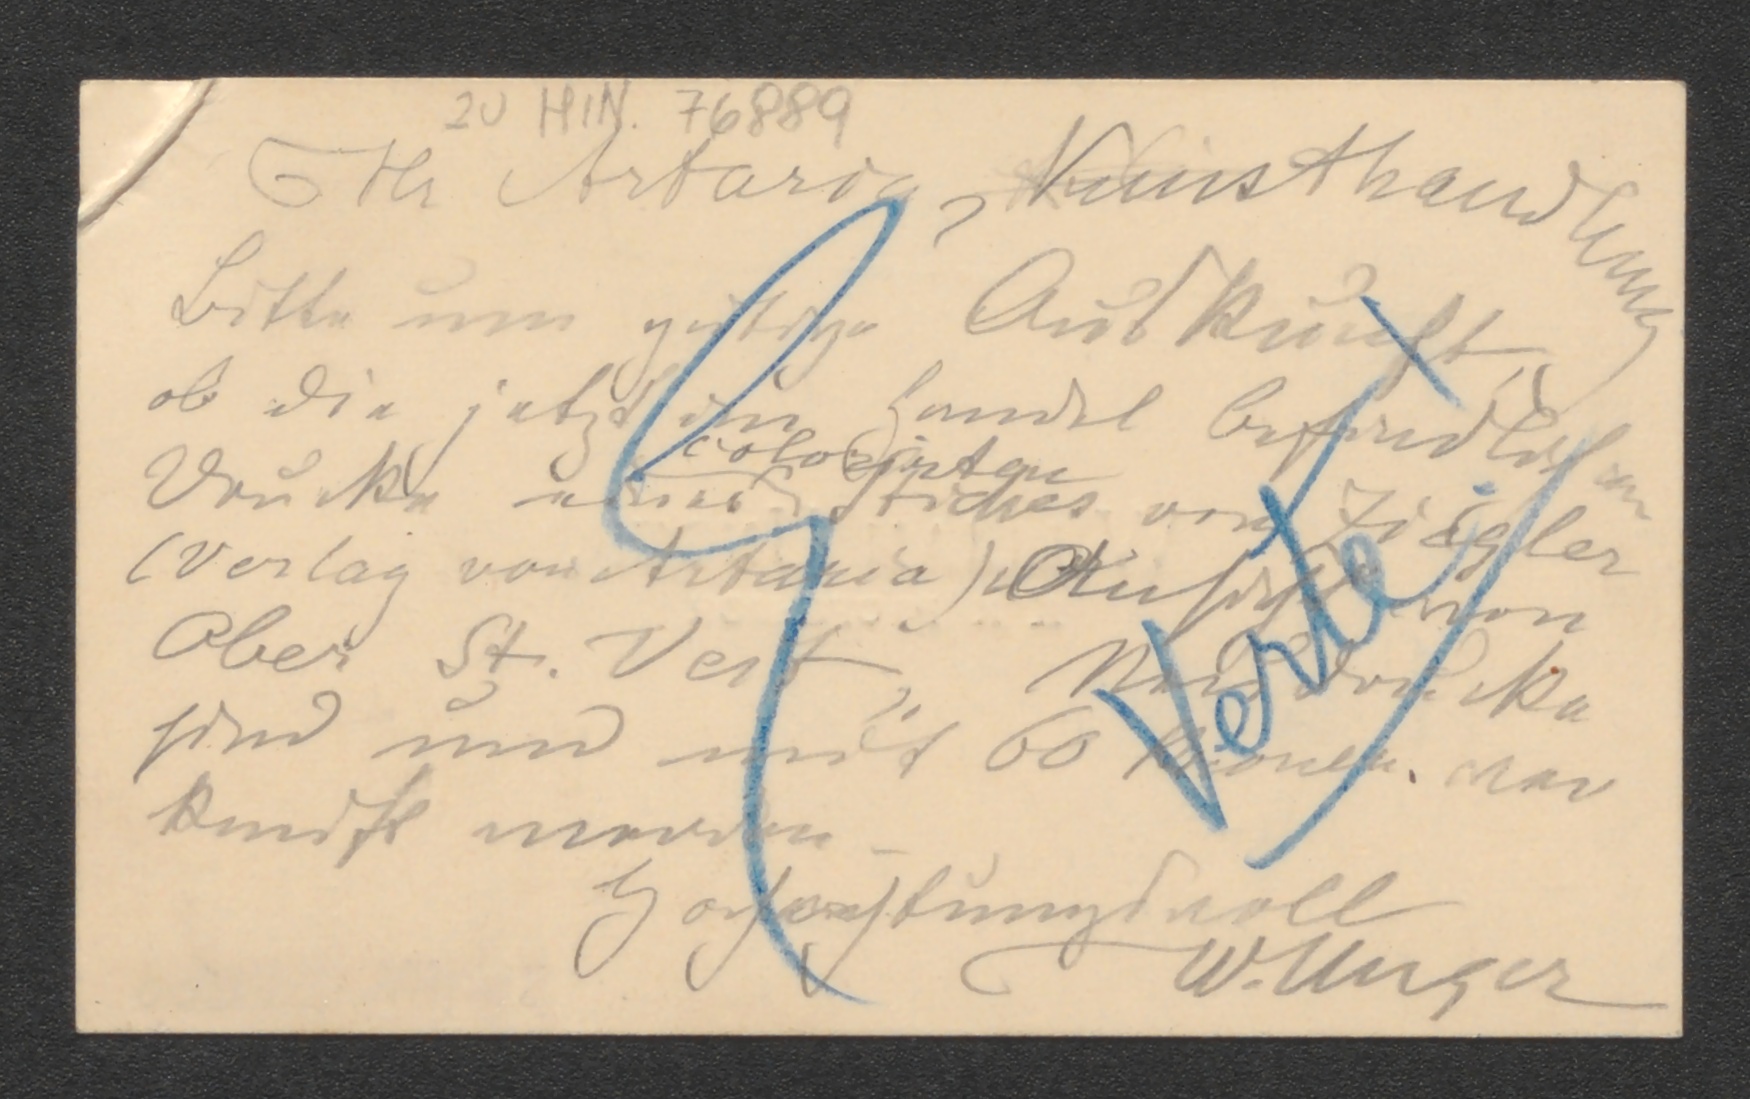 ZU HIN. 76889
Hr Artaria, Kunsthandlung
Bitte um gütige Auskunft,
ob die jetzt im Handel befindlichen
Drucke eines colorirten Stiches von Ziegler
(Verlag von Artaria) Ansicht von
Ober St. Veit, Neudrucke
sind und mit 60 Kronen ver
kauft werden –
Hochachtungsvoll
W. Unger
Verte!